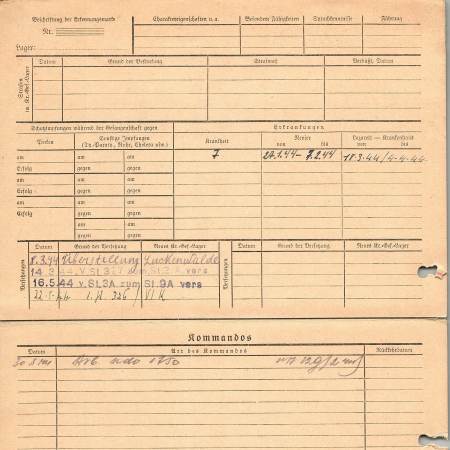 Beschriftung der Erkennungsmarke
Nr.
Lager:
Charaktereigenschaften u. a.
Besondere Fähigkeiten
Sprachkenntnisse
Führung
Strafen in Kr.-Gef.-Lager
Datum
Grund der Bestrafung
Strafmaß
Verbüßt, Datum
Schutzimpfungen während der Gefangenschaft gegen
Erkrankungen
Pocken
Sonstige Impfungen
(Ty.-Paraty., Ruhr, Cholera usw.)
Krankheit
Revier
von bis
Lazarett — Krankenhaus
von bis
7
24.1.44 - 7.2.44
18.3.44/4.4.44
am am am
Erfolg gegen gegen
am am am
Erfolg gegen gegen
am am am
Erfolg gegen gegen
am am
gegen gegen
Versetzungen
Datum
Grund der Versetzung
Neues Kr.-Gef.-Lager
Versetzungen
Datum
Grund der Versetzung
Neues Kr.-Gef.-Lager
8.3.44 Überstellung Luckenwalde
14.3.44 v. St.327 zum St.3A vers
16.5.44 v. St.3A zum St.9A vers
326 / VI K
Kommandos
Datum
Art des Kommandos
Rückkehrdatum
Arb. Kdo 1750